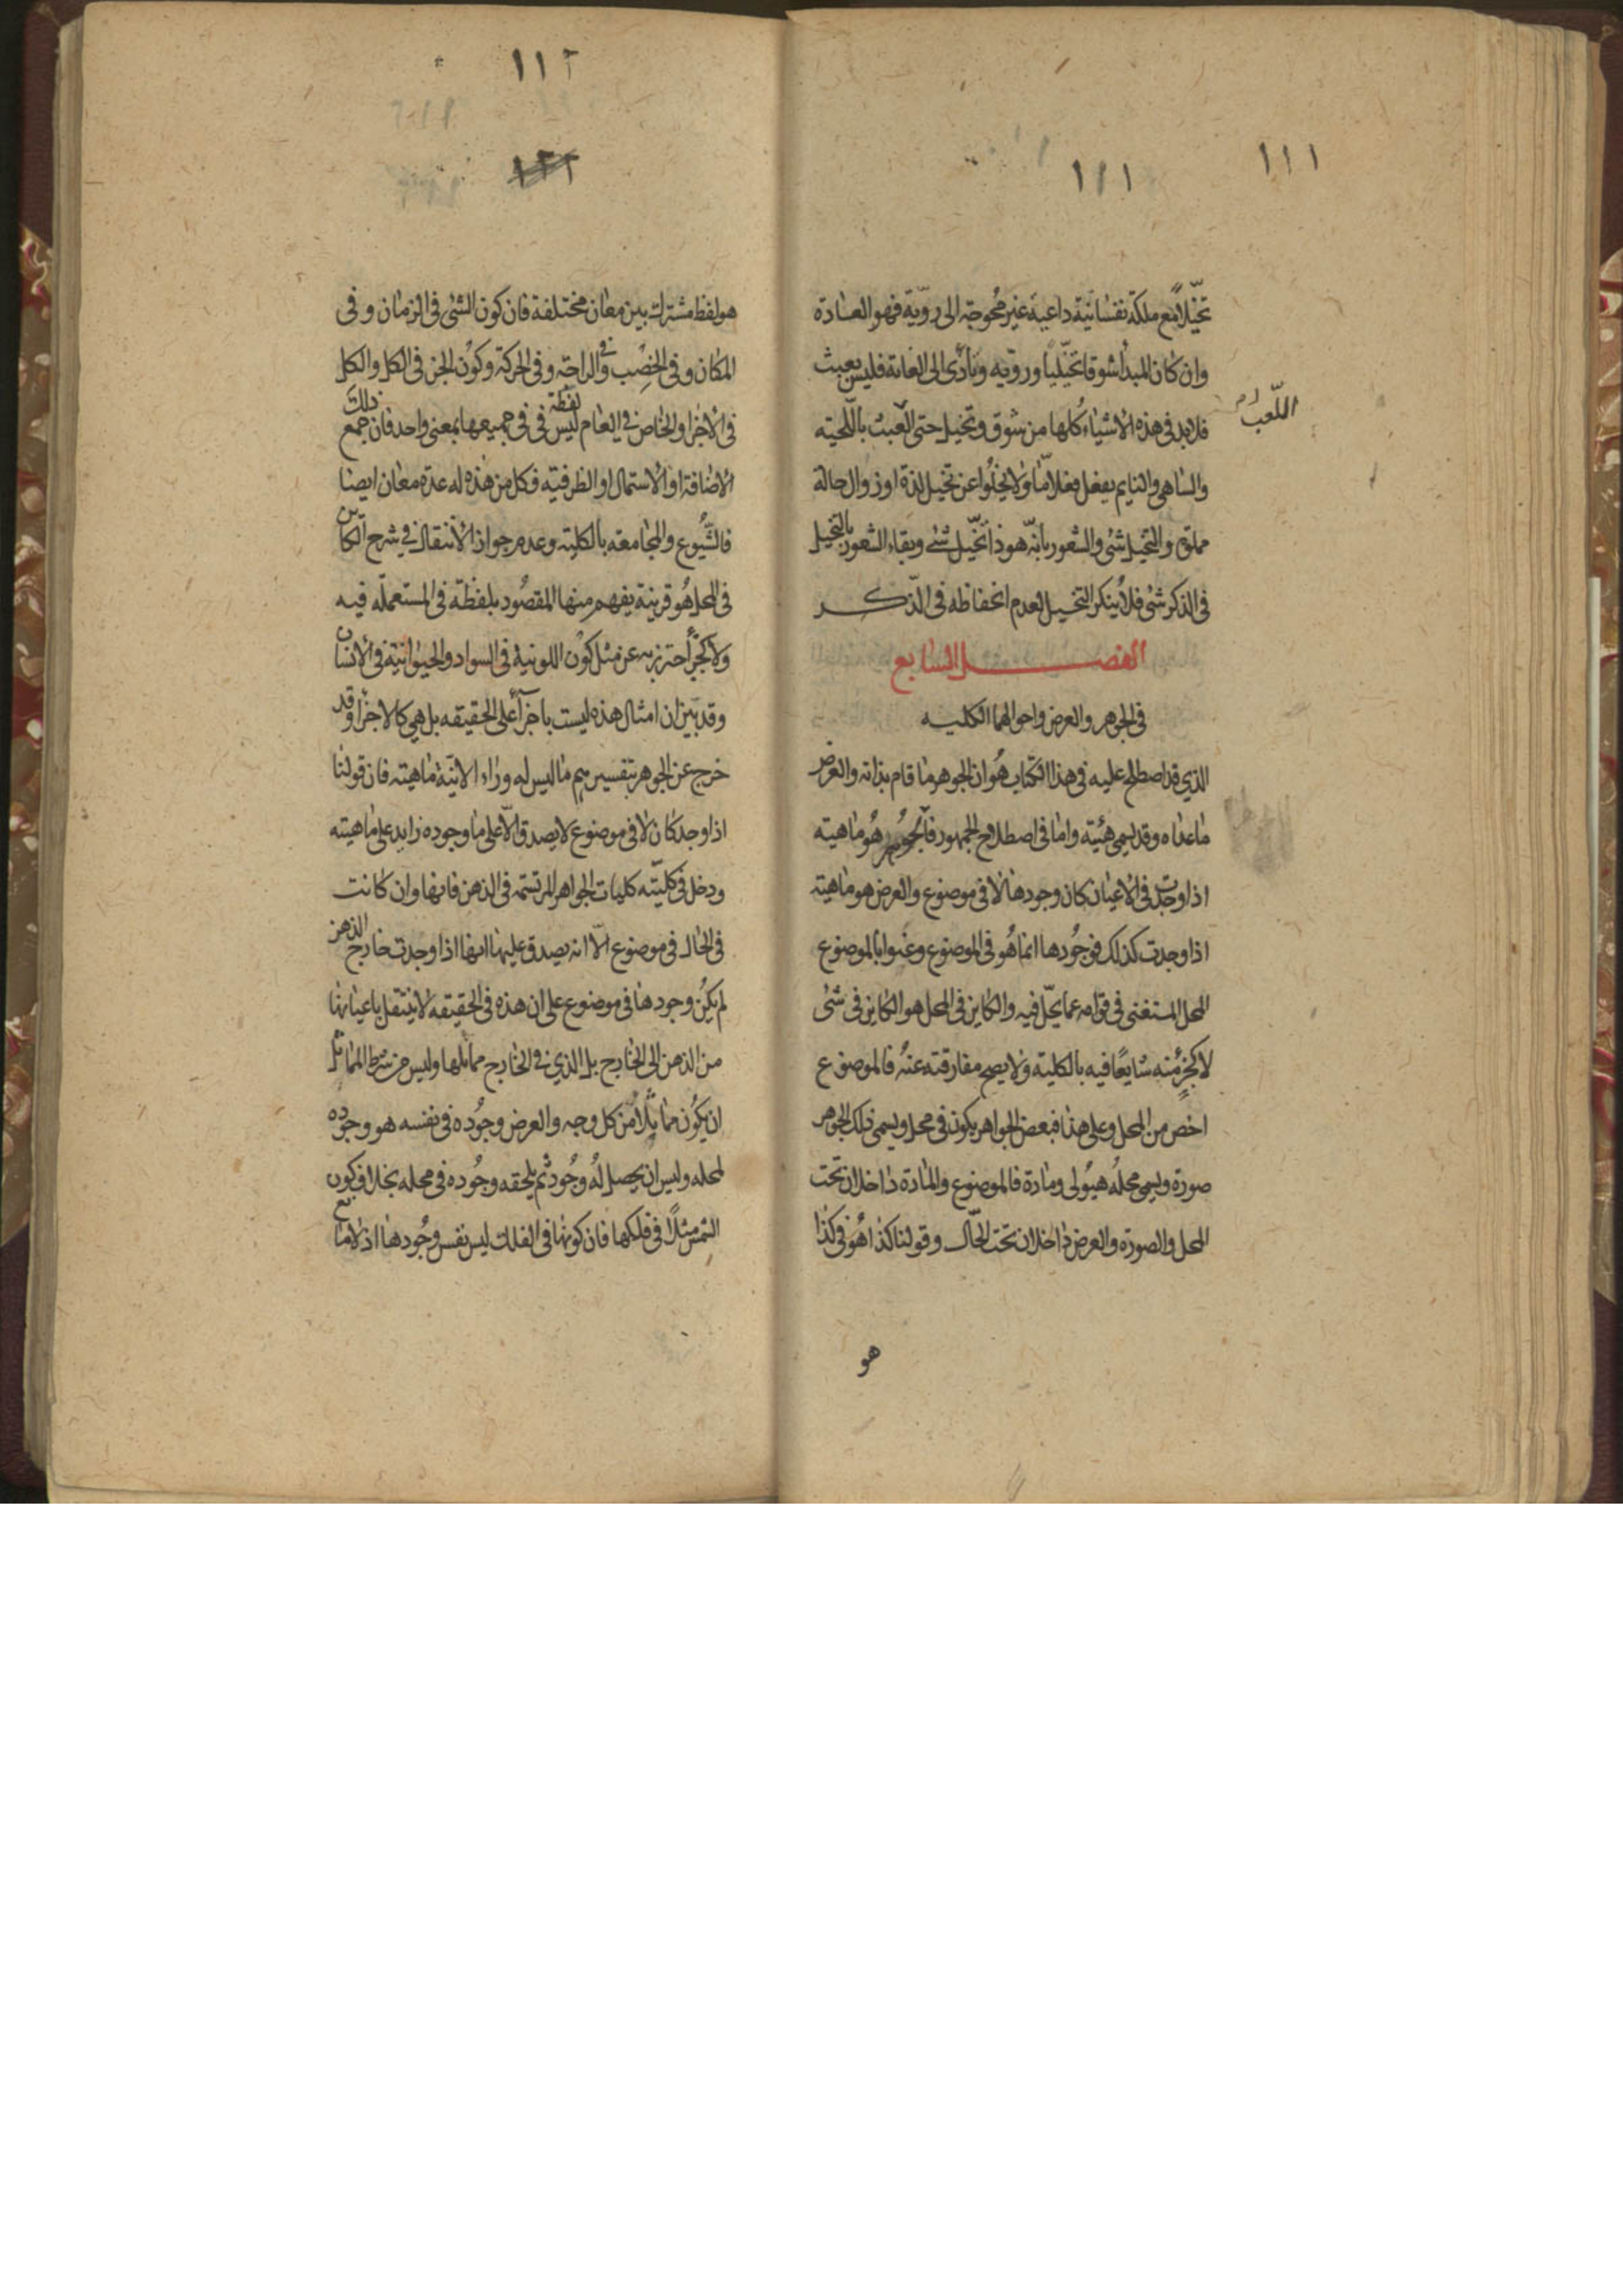 ١١١
١١١
تخيّلا مع ملكة نفسانية داعية غير محوجة الى رويّة فهو العادة
وان كان المبدأ شوقا تخيّليا ورويّه وتأدى الى الغاية فليس بعبث
فلابد فى هذه الاشياء كلها من شوق وتخيل حتى العبث باللحيته
اللّعب
والساهى والنايم يفعل فعلا مّا ولا يخلوا عن تخيل لذة او زوال حالة
مملة والتخيل شئ والشعور بأنه هو ذا تخّيل شئ وبقاء الشعور بالتخيل
فى الذكر شئ فلا ينكر التخيل لعدم انحفاظه فى الذّكر
الفصل السابع
فى الجوهر والعرض واحوالهما الكليه
الذي قد اصطلح عليه فى هذا الكتاب هو ان الجوهر ما قام بذاته والعرض
ما عداه وقد يسمى هيئته واما فى اصطلاح الجمهور فالجوهر هو ماهيته
اذا وجدت فى الاعيان كان وجودها لا فى موضوع والعرض هو ماهيته
اذا وجدت كذلك فوجودها انما هو فى الموضوع وعنوا بالموضوع
المحل المستغنى فى قوامه عما يحلّ فيه والكاين فى المحل هو الكاين فى شئ
لا كجزء منه شايعًا فيه بالكليته ولا يصح مفارقته عنه فالموضوع
اخص من المحل وعلى هذا فبعض الجواهر يكون فى محل ويسمى ذلك الجوهر
صورة ويسمى محله هيولى ومادة فالموضوع والمادة داخلان تحت
المحل والصورة والعرض داخلان تحت الحّال وقولنا كذا هو فى كذا
هو
١١٢
١٢٢
هو لفظ مشترك بين معان مختلفة فان كون الشئ فى الزمان وفى
المكان وفى الخصب و فى الراحة وفى الحركة وكون الجزء فى الكل والكل
فى الاجزا والخاص فى العام ليس لفظة فى فى جميعها بمعنى واحد فان جمع ذلك
الاضافة او الاشتمال او الظرفيه فكل من هذه له عدة معان ايضا
فالشّيوع والمجامعه بالكليته وعدم جواز الانتقال فى شرح الكاين
فى المحل هو قرينة يفهم منها المقصود بلفظة فى المستعمله فيه
ولا كجزء احترز به عن مثل كون اللونية فى السواد والحيوانية فى الانسان
وقد بين ان امثال هذه ليست باجزآ على الحقيقه بل هي كالاجزا وقد
خرج عن الجوهر بتفسيرهم ما ليس له وراء الانيّة ماهيته فان قولنا
اذا وجد كان لا فى موضوع لا يصدق الّا على ما وجوده زايد على ماهيته
ودخل فى كليّته كليات الجواهر المرتسمه فى الذهن فانها وان كانت
فى الحال فى موضوع الّا انه يصدق عليها انها اذا وجدت خارج الذهن
لم يكن وجودها فى موضوع على ان هذه فى الحقيقه لا ينتقل باعيانها
من الذهن الى الخارج بل الذي فى الخارج مماثلها وليس من شرط المماثل
ان يكون مماثلا من كل وجه والعرض وجوده فى نفسه هو وجوده
لمحله وليس ان يحصل له وجود ثم يلحقه وجوده فى محله بخلاف كون
الشمس مثلاً فى فلكها فان كونها فى الفلك ليس نفس وجودها اذ لا مانع